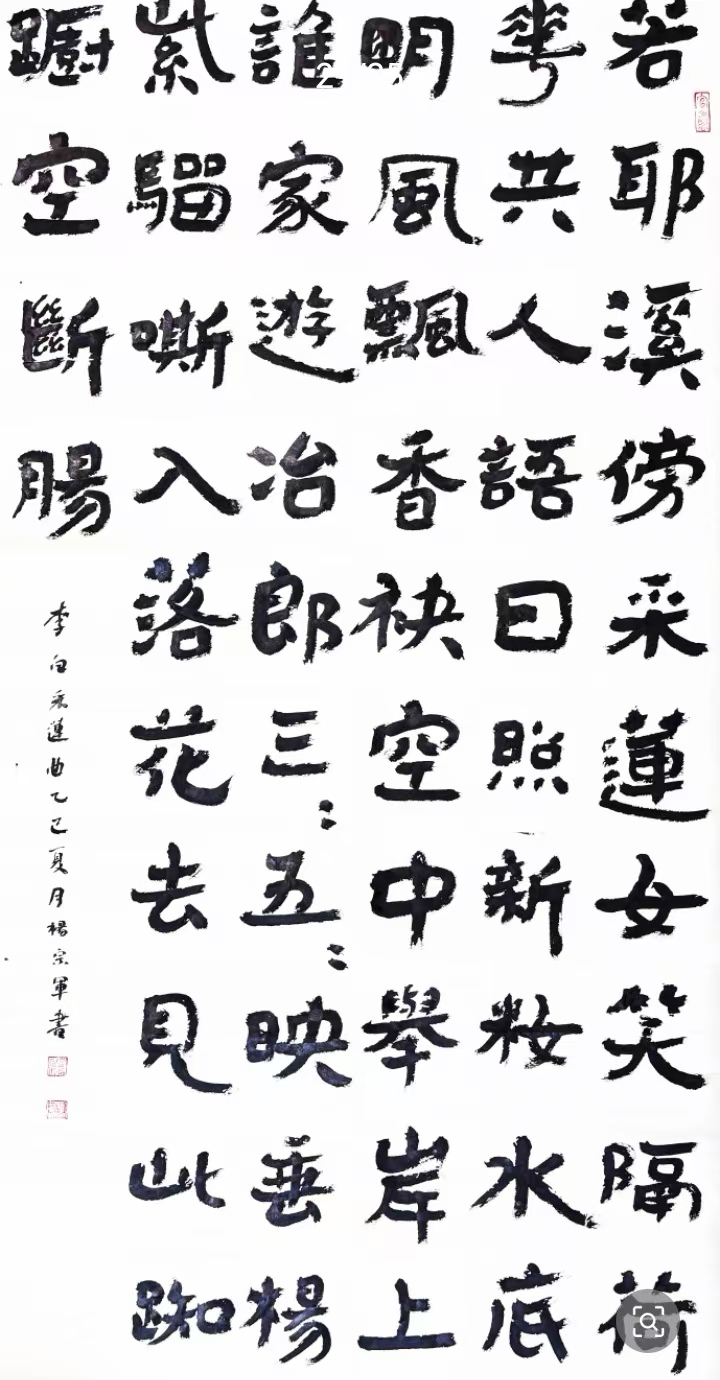 若耶溪傍采蓮女笑隔荷
華共人語日照新妝水底
明風飄香袂空中舉岸上
誰家遊冶郎三〻五〻映垂楊
紫騮嘶入落花去見此踟
躕空斷腸
李白采蓮曲乙巳夏月楊宗軍書